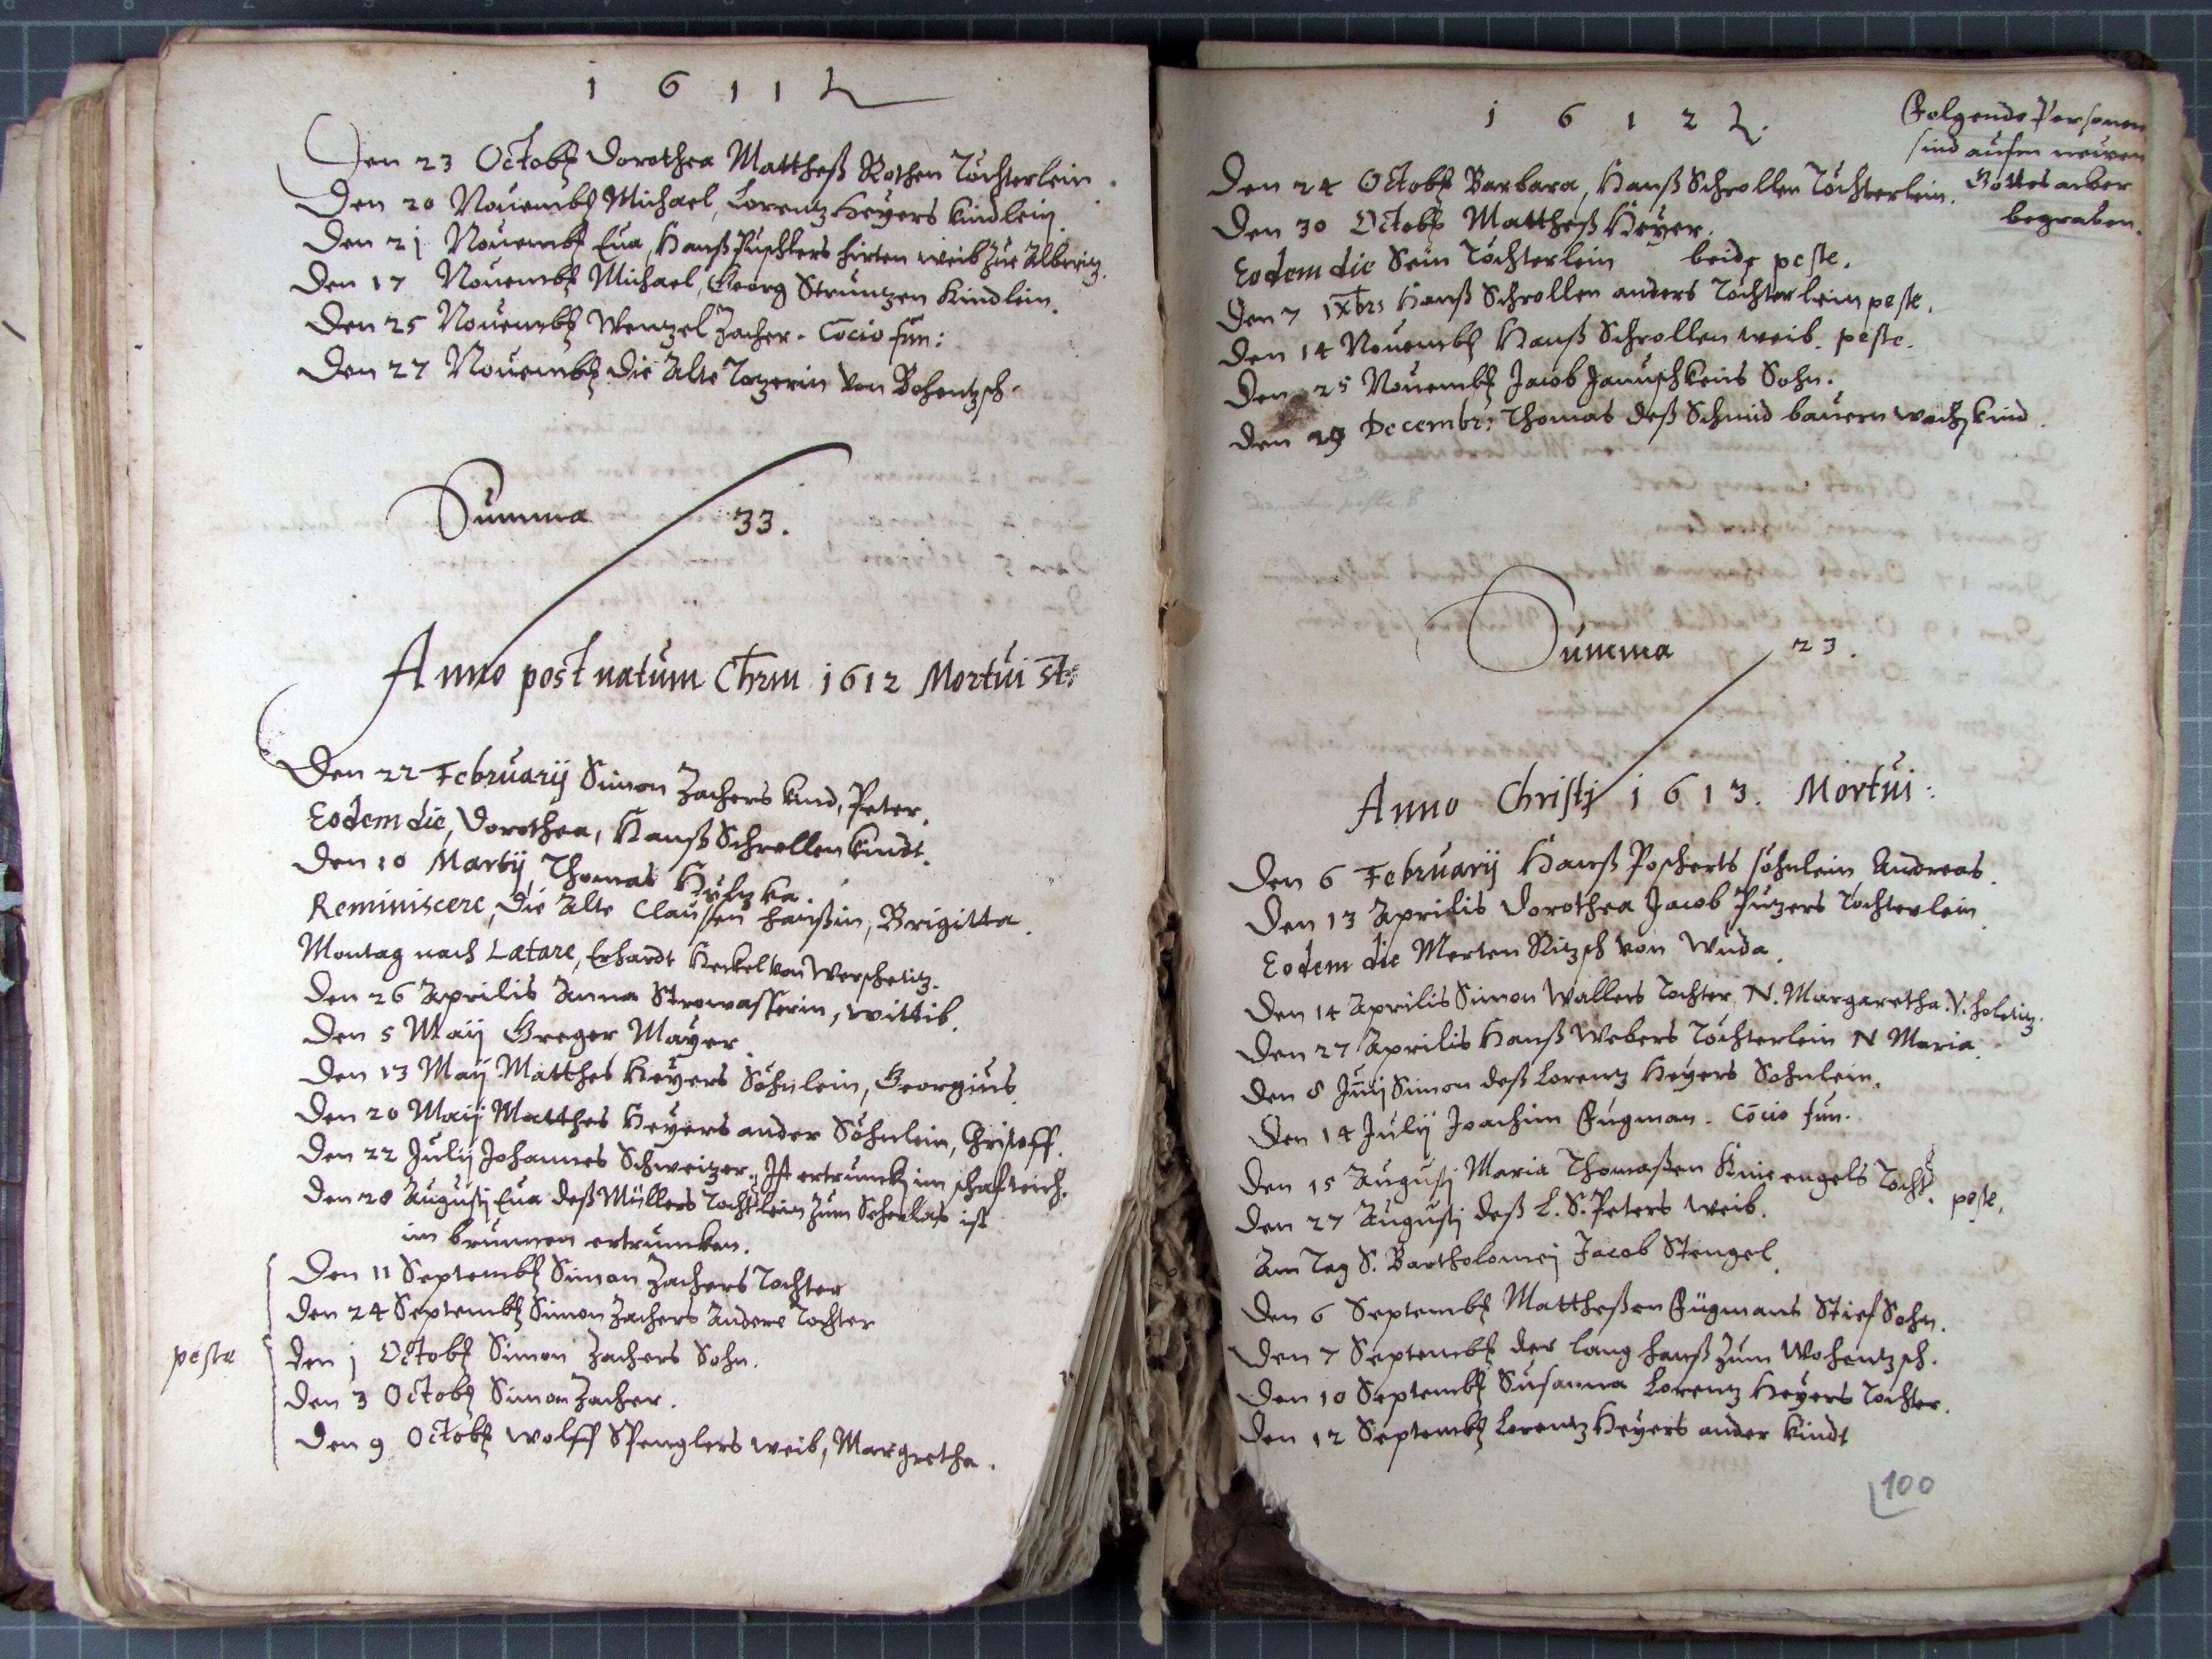 1 6 1 1
Den 23 Octob: Dorothea Mattheß Rothen Töchterlein.
Den 20 Nouemb: Michael, Lorentz Heyers Kindlein.
Den 21 Nouemb: Eua, Hanß hirten weib zue
Den 17 Nouemb: Michael, Georg Struntzen Kindlein.
Den 25 Nouemb: Wentzel Zacher. Cōcio fun:
Den 27 Nouemb: die Alte von
Summa 33.
Anno post natum Chrm 1612 Mortui st:
Den 22 Februarij Simon Zachers kind, Peter.
Eodem die, Dorothea, Hanß Schrollen kindt.
Den 10 Martij Thomas
Reminiscere, die Alte Claussen Hanßin, Brigitta.
Montag nach Lætare, Erhardt Heckel von
Den 26 Aprilis Anna Strowasserin, wittib.
Den 5 Maij Greger Mayer.
Den 13 Maij Matthes Heyers Söhnlein, Georgius.
Den 20 Maij Matthes Heyers ander Söhnlein, Christoff.
Den 22 Julij Johannes Schweitzer, Ist ertrunck: im
Den 28 Augustj Eua deß Müllers Töchtlein zum ist
im brunnen ertruncken.
Den 11 Septemb: Simon Zachers Tochter
Den 24 Septemb: Simon Zachers Andere Tochter
peste
Den 1 Octob: Simon Zachers Sohn.
Den 3 Octob: Simon Zacher.
Den 9 Octob: Wolff Spenglers weib, Margretha.
1 6 1 2
Folgende Personen
sind aufm neuen
Gottesacker
begraben.
Den 24 Octob: Barbara, Hanß Schrollen Töchterlein.
Den 30 Octob: Mattheß Heyer.
Eodem die Sein Töchterlein beide peste.
Den 7 IXbr: Hanß Schrollen anders Töchterlein peste.
Den 14 Nouemb: Hanß Schrollen weib. peste.
Den 25 Nouemb: Jacob Januschkens Sohn.
Den Decembr: Thomas deß Schmid bauern kind.
Summa 23.
Anno Christj 1 6 1 3. Mortui:
Den 6 Februarij Hanß Poscherts söhnlein Andreas.
Den 13 Aprilis Dorothea Jacob Putzers Töchterlein
Eodem die Merten Nitzsch von Wuda.
Den 14 Aprilis Simon Wallers Tochter, N. Margaretha. V.
Den 27 Aprilis Hanß Webers Töchterlein N Maria.
Den 8 Simon deß Lorentz Heyers Söhnlein.
Den 14 Julij Joachim Fugman. Cōcio fun.
Den 15 Augustj Maria Thomaßen Knieengels Tocht. peste.
Den 27 Augustj deß L. S. Peters weib.
Am Tag S. Bartholomej Jacob Stengel.
Den 6 Septemb: Mattheßen Fugmans StiefSohn.
Den 7 Septemb: der lang Hanß zum Wohentzsch.
Den 10 Septemb: Susanna Lorentz Heyers Tochter.
Den 12 Septemb: Lorentz Heyers ander kindt
100